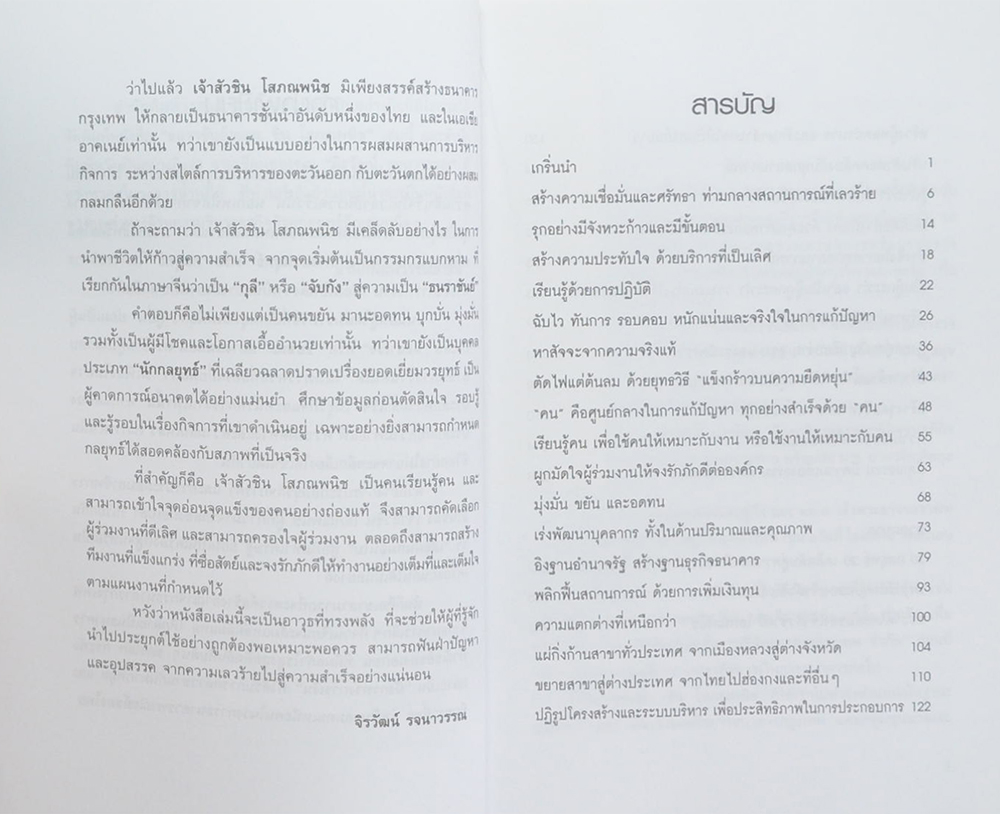 ว่าไปแล้ว เจ้าสัวชิน โสภณพนิช มิเพียงสรรค์สร้างธนาคาร
กรุงเทพ ให้กลายเป็นธนาคารชั้นนำอันดับหนึ่งของไทย และในเอเชีย
อาคเนย์เท่านั้น ทว่าเขายังเป็นแบบอย่างในการผสมผสานการบริหาร
กิจการ ระหว่างสไตล์การบริหารของตะวันออก กับตะวันตกได้อย่างผสม
กลมกลืนอีกด้วย
ถ้าจะถามว่า เจ้าสัวชิน โสภณพนิช มีเคล็ดลับอย่างไร ในการ
นำพาชีวิตให้ก้าวสู่ความสำเร็จ จากจุดเริ่มต้นเป็นกรรมกรแบกหาม ที่
เรียกกันในภาษาจีนว่าเป็น "กุลี" หรือ "จับกัง" สู่ความเป็น "ธนราชันย์"
คำตอบก็คือไม่เพียงแต่เป็นคนขยัน มานะอดทน บุกบั่น มุ่งมั่น
รวมทั้งเป็นผู้มีโชคและโอกาสเอื้ออำนวยเท่านั้น ทว่าเขายังเป็นบุคคล
ประเภท "นักกลยุทธ์" ที่เฉลียวฉลาดปราดเปรื่องยอดเยี่ยมวรยุทธ์ เป็น
ผู้คาดการณ์อนาคตได้อย่างแม่นยำ ศึกษาข้อมูลก่อนตัดสินใจ รอบรู้
และรู้รอบในเรื่องกิจการที่เขาดำเนินอยู่ เฉพาะอย่างยิ่งสามารถกำหนด
กลยุทธ์ได้สอดคล้องกับสภาพที่เป็นจริง
ที่สำคัญก็คือ เจ้าสัวชิน โสภณพนิช เป็นคนเรียนรู้คน และ
สามารถเข้าใจจุดอ่อนจุดแข็งของคนอย่างถ่องแท้ จึงสามารถคัดเลือก
ผู้ร่วมงานที่ดีเลิศ และสามารถครองใจผู้ร่วมงาน ตลอดถึงสามารถสร้าง
ทีมงานที่แข็งแกร่ง ที่ซื่อสัตย์และจงรักภักดีให้ทำงานอย่างเต็มที่และเต็มใจ
ตามแผนงานที่กำหนดไว้
หวังว่าหนังสือเล่มนี้จะเป็นอาวุธที่ทรงพลัง ที่จะช่วยให้ผู้ที่รู้จัก
นำไปประยุกต์ใช้อย่างถูกต้องพอเหมาะพอควร สามารถฟันฝ่าปัญหา
และอุปสรรค จากความเลวร้ายไปสู่ความสำเร็จอย่างแน่นอน
จิรวัฒน์ รจนาวรรณ
สารบัญ
เกริ่นนำ 1
สร้างความเชื่อมั่นและศรัทธา ท่ามกลางสถานการณ์ที่เลวร้าย 6
รุกอย่างมีจังหวะก้าวและมีขั้นตอน 14
สร้างความประทับใจ ด้วยบริการที่เป็นเลิศ 18
เรียนรู้ด้วยการปฏิบัติ 22
ฉับไว ทันการ รอบคอบ หนักแน่นและจริงใจในการแก้ปัญหา 26
หาสัจจะจากความจริงแท้ 36
ตัดไฟแต่ต้นลม ด้วยยุทธวิธี "แข็งกร้าวบนความยืดหยุ่น" 43
"คน" คือศูนย์กลางในการแก้ปัญหา ทุกอย่างสำเร็จด้วย "คน" 48
เรียนรู้คน เพื่อใช้คนให้เหมาะกับงาน หรือใช้งานให้เหมาะกับคน 55
ผูกมัดใจผู้ร่วมงานให้จงรักภักดีต่อองค์กร 63
มุ่งมั่น ขยัน และอดทน 68
เร่งพัฒนาบุคลากร ทั้งในด้านปริมาณและคุณภาพ 73
อิงฐานอำนาจรัฐ สร้างฐานธุรกิจธนาคาร 79
พลิกฟื้นสถานการณ์ ด้วยการเพิ่มเงินทุน 93
ความแตกต่างที่เหนือกว่า 100
แผ่กิ่งก้านสาขาทั่วประเทศ จากเมืองหลวงสู่ต่างจังหวัด 104
ขยายสาขาสู่ต่างประเทศ จากไทยไปฮ่องกงและที่อื่นๆ 110
ปฏิรูปโครงสร้างและระบบบริหาร เพื่อประสิทธิภาพในการประกอบการ 122